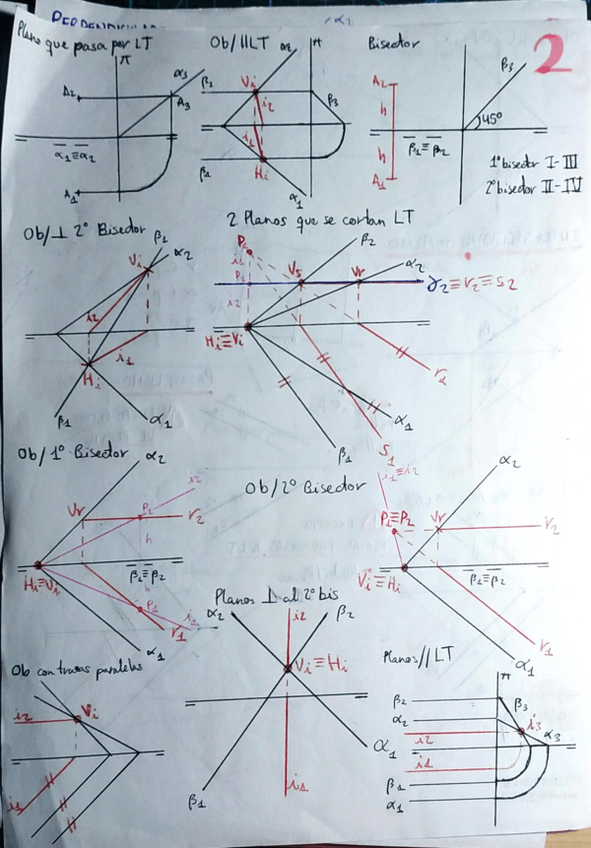 α2
Plano que pasa por LT
π
α3
A2
A3
α1≡α2
A1
Ob/IILT
α2
π
β2
Vi
i2
β3
i1
β1
Hi
α1
Bisector
2
β3
A2
h
45º
h
β1≡β2
A1
1º bisector I-III
2º bisector II-IV
Ob/⊥ 2º Bisector
β1
α2
Vi
i2
i1
Hi
β1
α1
2 Planos que se cortan LT
P2
β2
i1
Vs
Vr
α2
P1
γ2≡r2≡s2
i2
Hi≡Vi
r1
α1
β1
s1
Ob/1º Bisector
α2
i2
Vr
P2
r2
h
Hi≡Vi
β1≡β2
h
P1
i1
r1
α1
Ob/2º Bisector
i1≡i2
α2
P1≡P2
Vr
r2
Vi≡Hi
β1≡β2
r1
α1
Planos ⊥ al 2º bis
α2
i2
β2
Vi≡Hi
α1
β1
i1
Ob con trazas paralelas
i2
Vi
i1
Planos//LT
π
β2
β3
α2
i3
i2
α3
i1
β1
α1